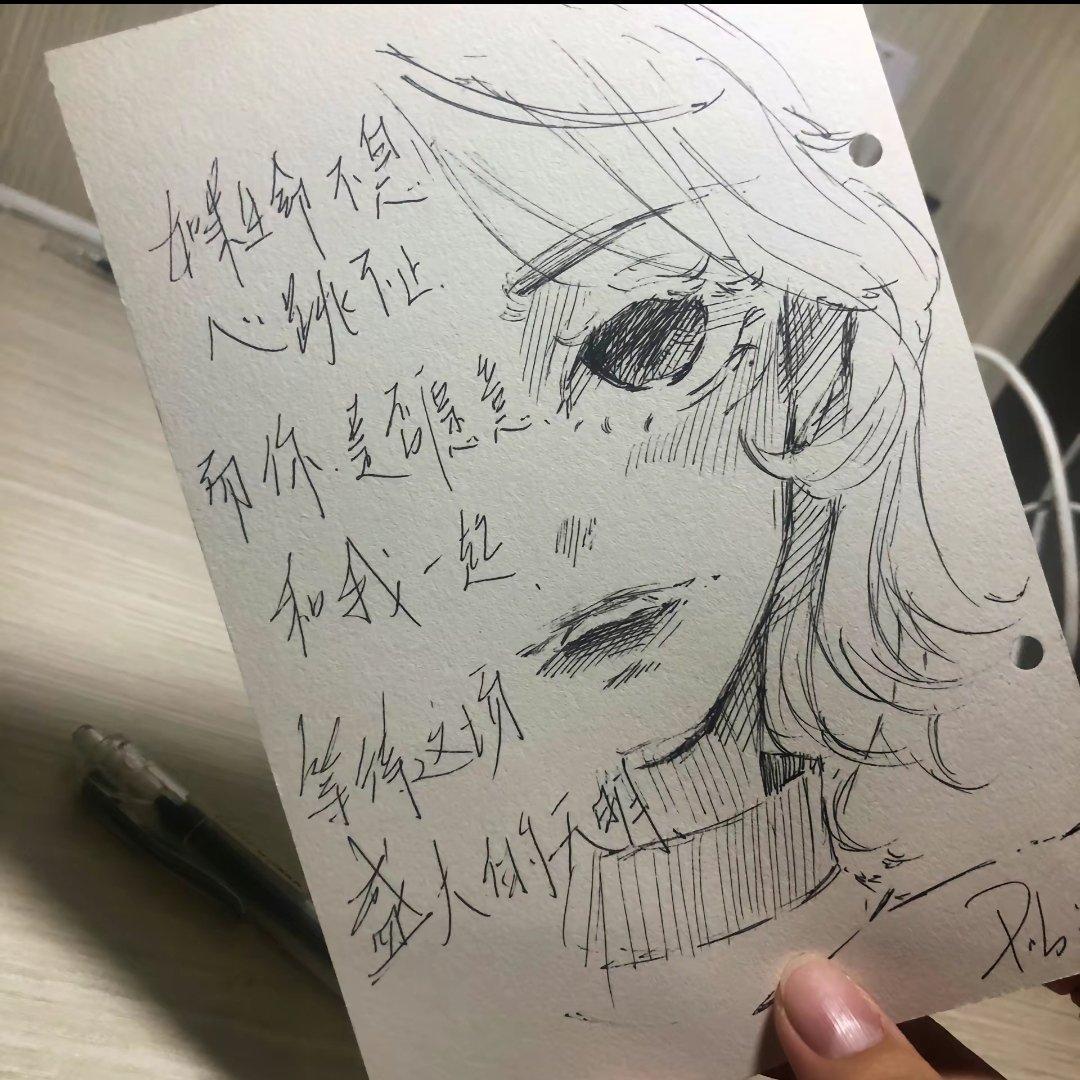 如果生命不息
心跳不止.
那你.是否愿意.
和我一起.
等待这场
盛大的天明.